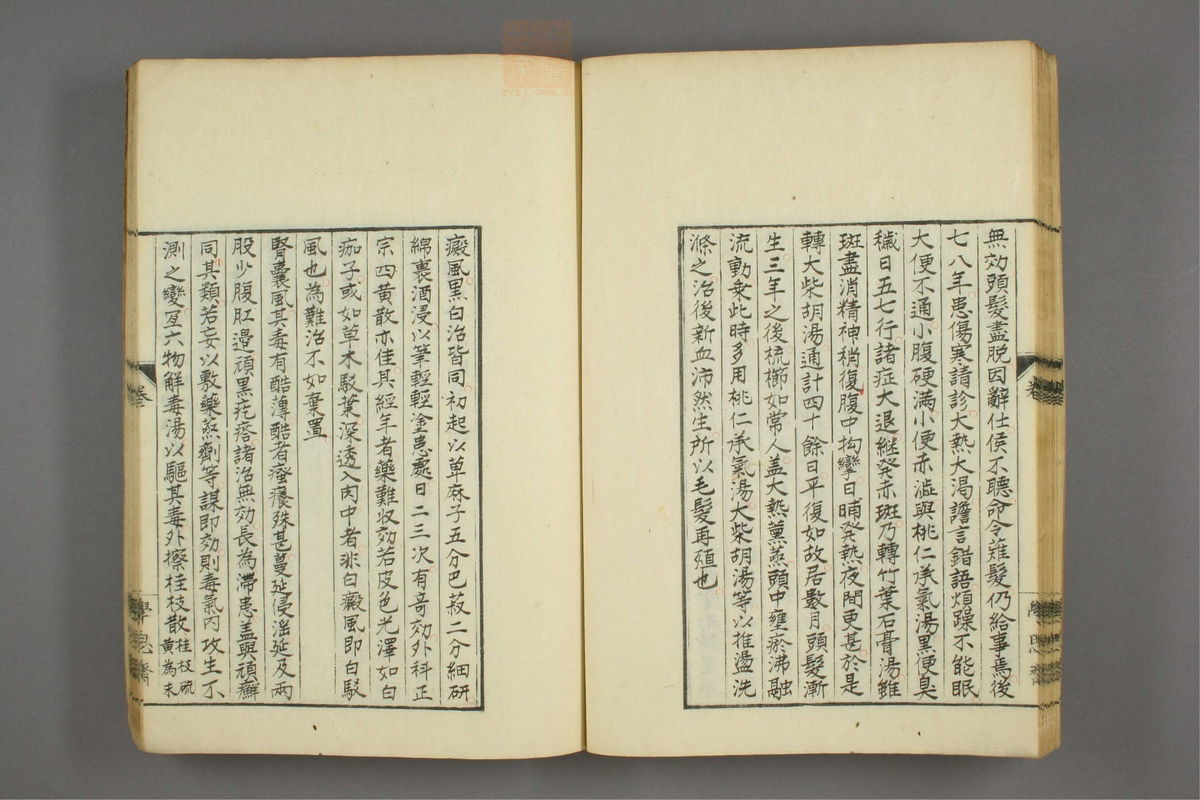 無効頭髮盡脱因辭仕侯不聽命令薙髮仍給事焉後
七八年患傷寒請診大熱大渴譫言錯語煩躁不能眠
大便不通小腹硬滿小便赤澁與桃仁承氣湯黑便臭
穢日五七行諸症大退継發赤斑乃轉竹葉石膏湯雖
斑盡消精神稍復腹中拘攣日晡發熱夜間更甚於是
轉大柴胡湯通計四十餘日平復如故居數月頭髮漸
生三年之後梳櫛如常人盖大熱薰蒸頭中壅瘀沸融
流動乗此時多用桃仁承氣湯大柴胡湯等以推盪洗
滌之治後新血沛然生所以毛髮再殖也
癜風黒白治皆同初起以草麻子五分巴菽二分細研
綿裹酒浸以筆輕輕塗患處日二三次有竒効外科正
宗四黄散亦佳其經年者藥難収効若皮色光澤如白
茄子或如草木駁葉深透入肉中者非白癜風即白駁
風也為難治不如棄置
腎囊風其毒有酷薄酷者瘙癢殊甚蔓延侵淫延及兩
股少腹肛邉頑黒疙瘩諸治無効長為滯患盖與頑癬
同其類若妄以敷藥蒸劑等謀即効則毒氣内攻生不
測之變宐六物解毒湯以驅其毒外擦桂枝散桂枝硫
黄為末
卷
學思齋
zysj.com.cn